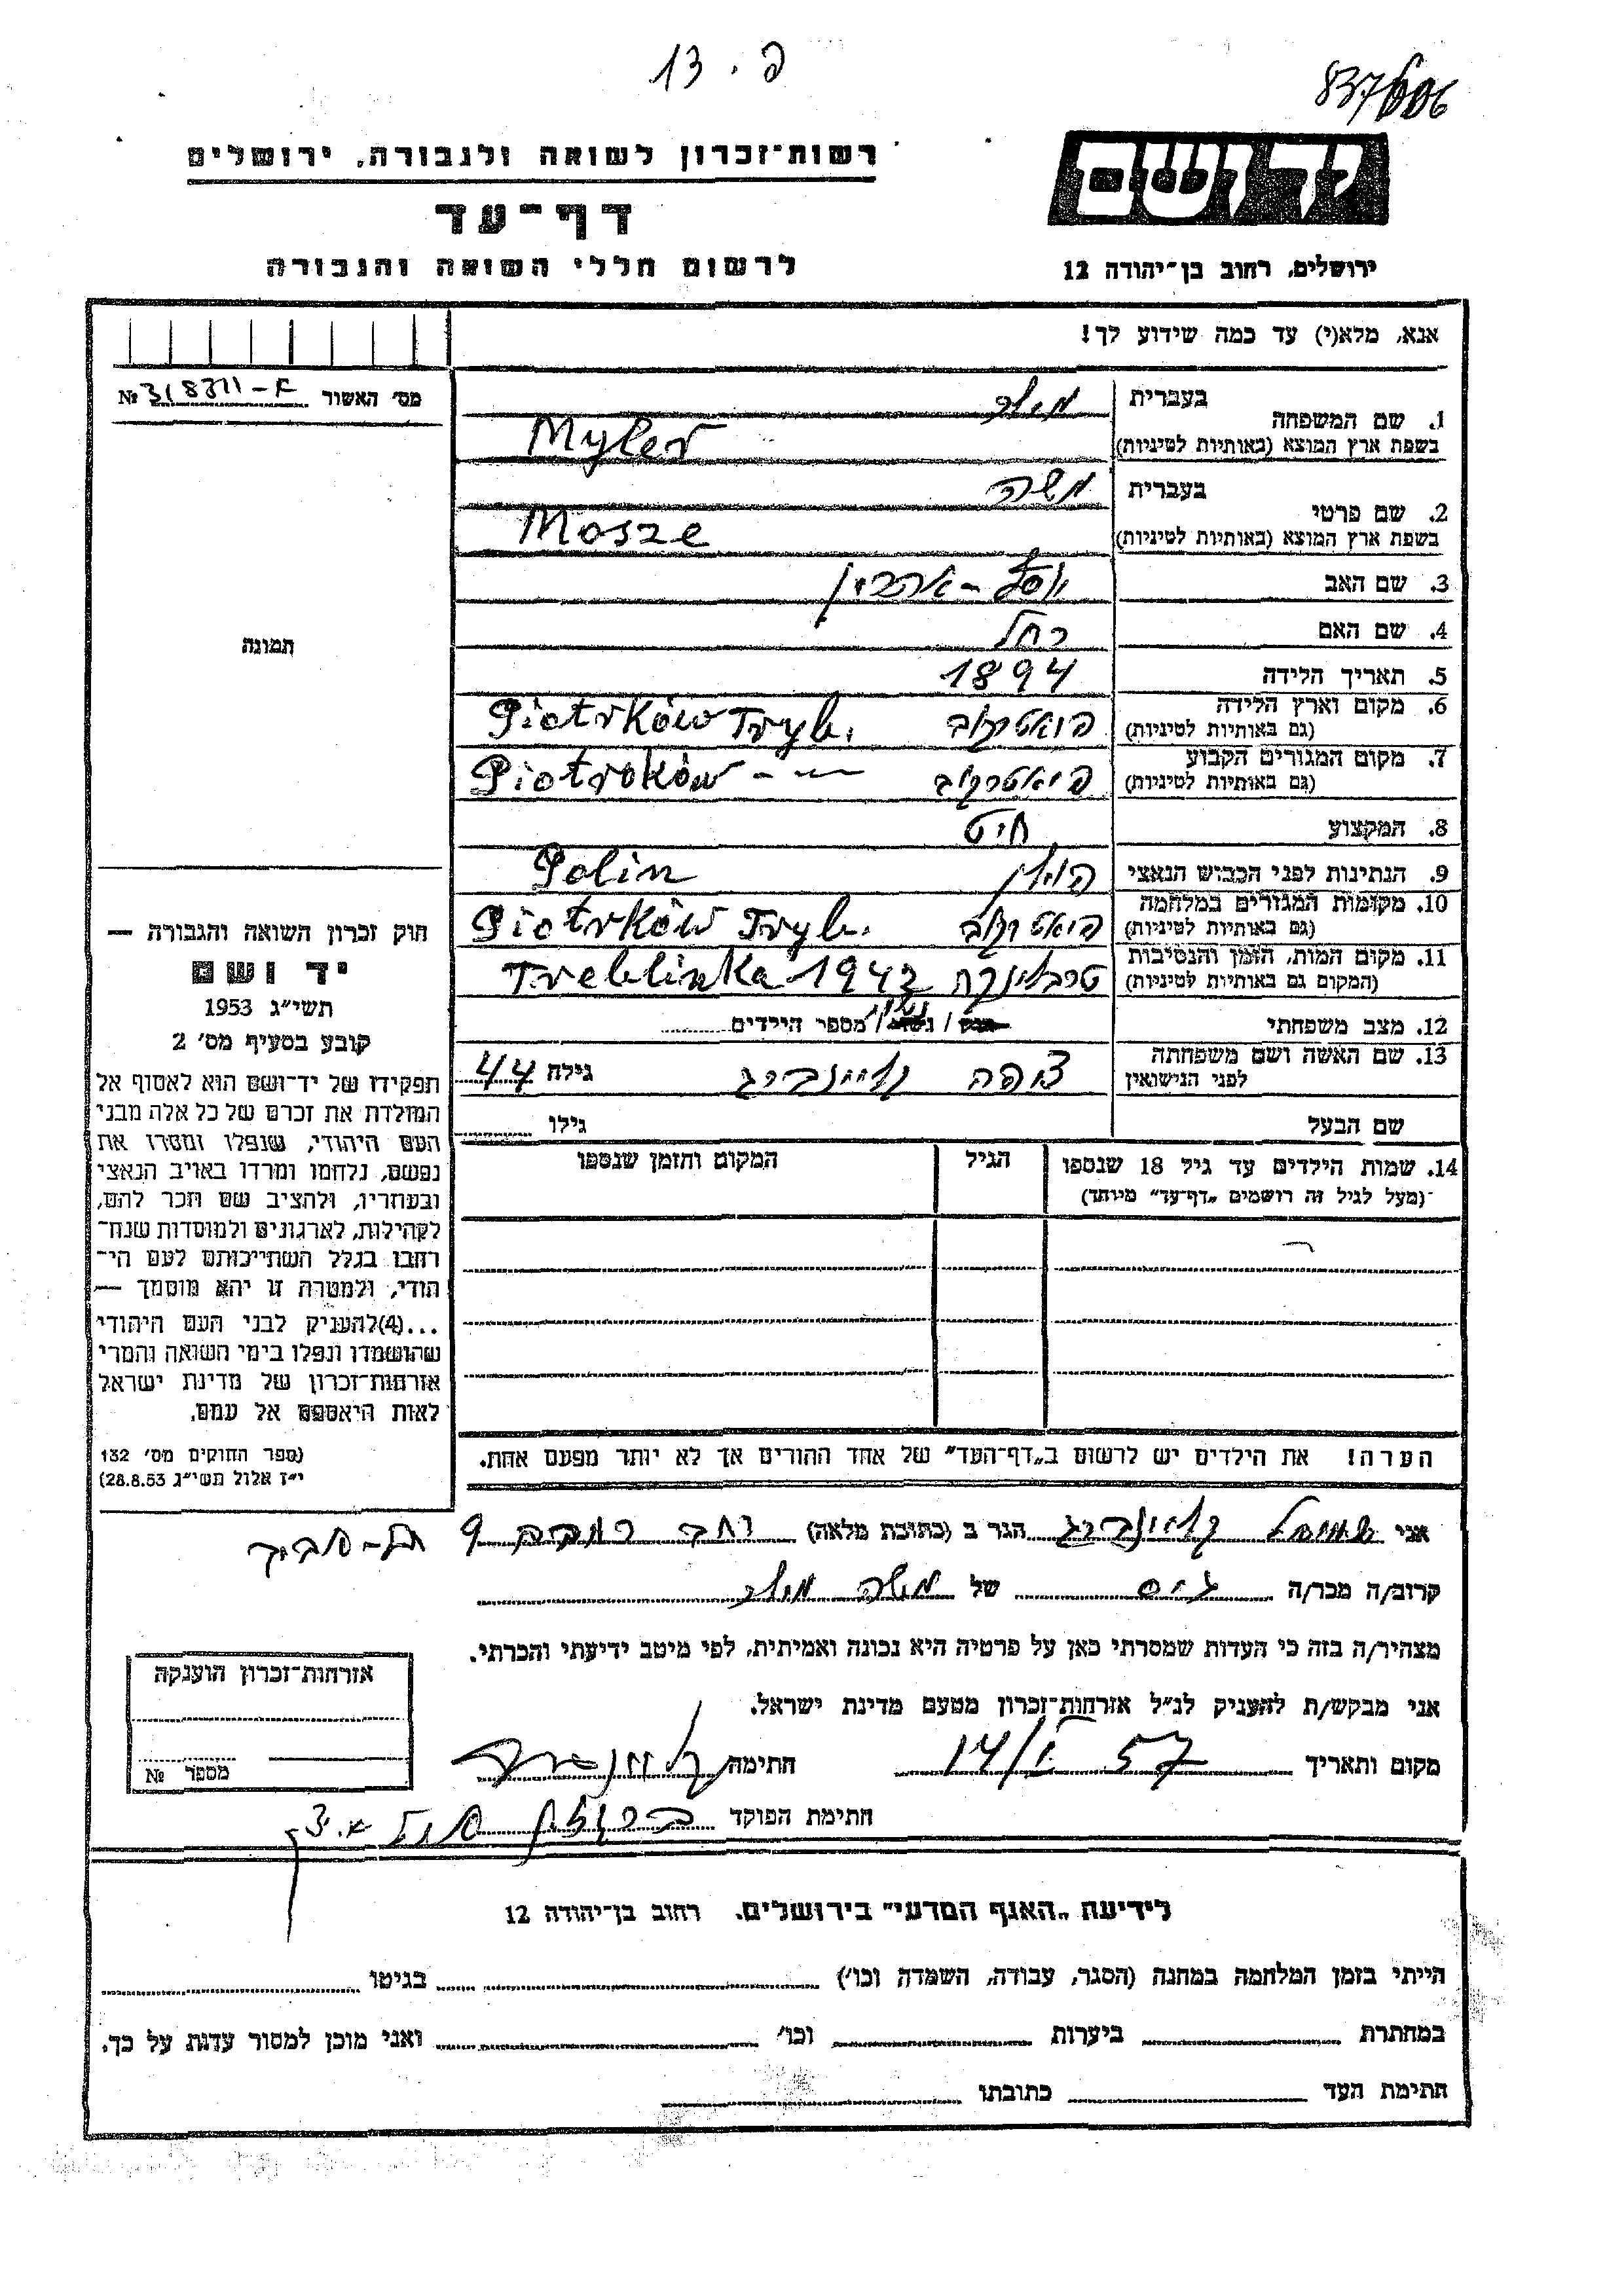 פ. 13
837/606
רשות־זכרון לשואה ולגבורה, ירושלים
דף־עד
לרשום חללי השואה והגבורה
יד ושם
ירושלים, רחוב בן־יהודה 12
אנא, מלא(י) עד כמה שידוע לך!
מס׳ האשור 318311-א №
1. שם המשפחה
בעברית מילר
בשפת ארץ המוצא (באותיות לטיניות) Myler
2. שם פרטי
בעברית משה
בשפת ארץ המוצא (באותיות לטיניות) Mosze
3. שם האב יוסף -
4. שם האם רחל
5. תאריך הלידה 1894
6. מקום וארץ הלידה (גם באותיות לטיניות) פיוטרקוב Piotrków Tryb.
7. מקום המגורים הקבוע (גם באותיות לטיניות) פיוטרקוב Piotroków - —
8. המקצוע חייט
9. הנתינות לפני הכבוש הנאצי פולין Polin
10. מקומות המגורים במלחמה (גם באותיות לטיניות) פיוטרקוב Piotrków Tryb.
11. מקום המות, הזמן והנסיבות (המקום גם באותיות לטיניות) טרבלינקה Treblinka 1942
12. מצב משפחתי נשוי / מספר הילדים
13. שם האשה ושם משפחתה לפני הנישואין גילה 44
שם הבעל גילו
14. שמות הילדים עד גיל 18 שנספו הגיל המקום והזמן שנספו
(מעל לגיל זה רושמים „דף־עד” מיוחד)
הערה! את הילדים יש לרשום ב„דף־העד” של אחד ההורים אך לא יותר מפעם אחת.
תמונה
חוק זכרון השואה והגבורה —
יד ושם
תשי״ג 1953
קובע בסעיף מס׳ 2
תפקידו של יד־ושם הוא לאסוף אל
המולדת את זכרם של כל אלה מבני
העם היהודי, שנפלו ומסרו את
נפשם, נלחמו ומרדו באויב הנאצי
ובעוזריו, ולהציב שם וזכר להם,
לקהילות, לארגונים ולמוסדות שנח־
רבו בגלל השתייכותם לעם הי־
הודי, ולמטרה זו יהא מוסמך —
...(4)להעניק לבני העם היהודי
שהושמדו ונפלו בימי השואה והמרי
אזרחות־זכרון של מדינת ישראל
לאות היאספם אל עמם.
(ספר החוקים מס׳ 132
י״ז אלול תשי״ג 28.8.53)
אני שמואל הגר ב (כתובת מלאה) רחב 9 תל-אביב
קרוב/ה מכר/ה גיס של משה מילר
מצהיר/ה בזה כי העדות שמסרתי כאן על פרטיה היא נכונה ואמיתית, לפי מיטב ידיעתי והכרתי.
אני מבקש/ת להעניק לנ״ל אזרחות־זכרון מטעם מדינת ישראל.
מקום ותאריך 14/I 57 חתימה
חתימת הפוקד
אזרחות־זכרון הוענקה
מספר №
לידיעת „האגף המדעי” בירושלים. רחוב בן־יהודה 12
הייתי בזמן המלחמה במחנה (הסגר, עבודה, השמדה וכו׳) בגיטו
במחתרת ביערות וכו׳ ואני מוכן למסור עדות על כך.
חתימת העד כתובתו